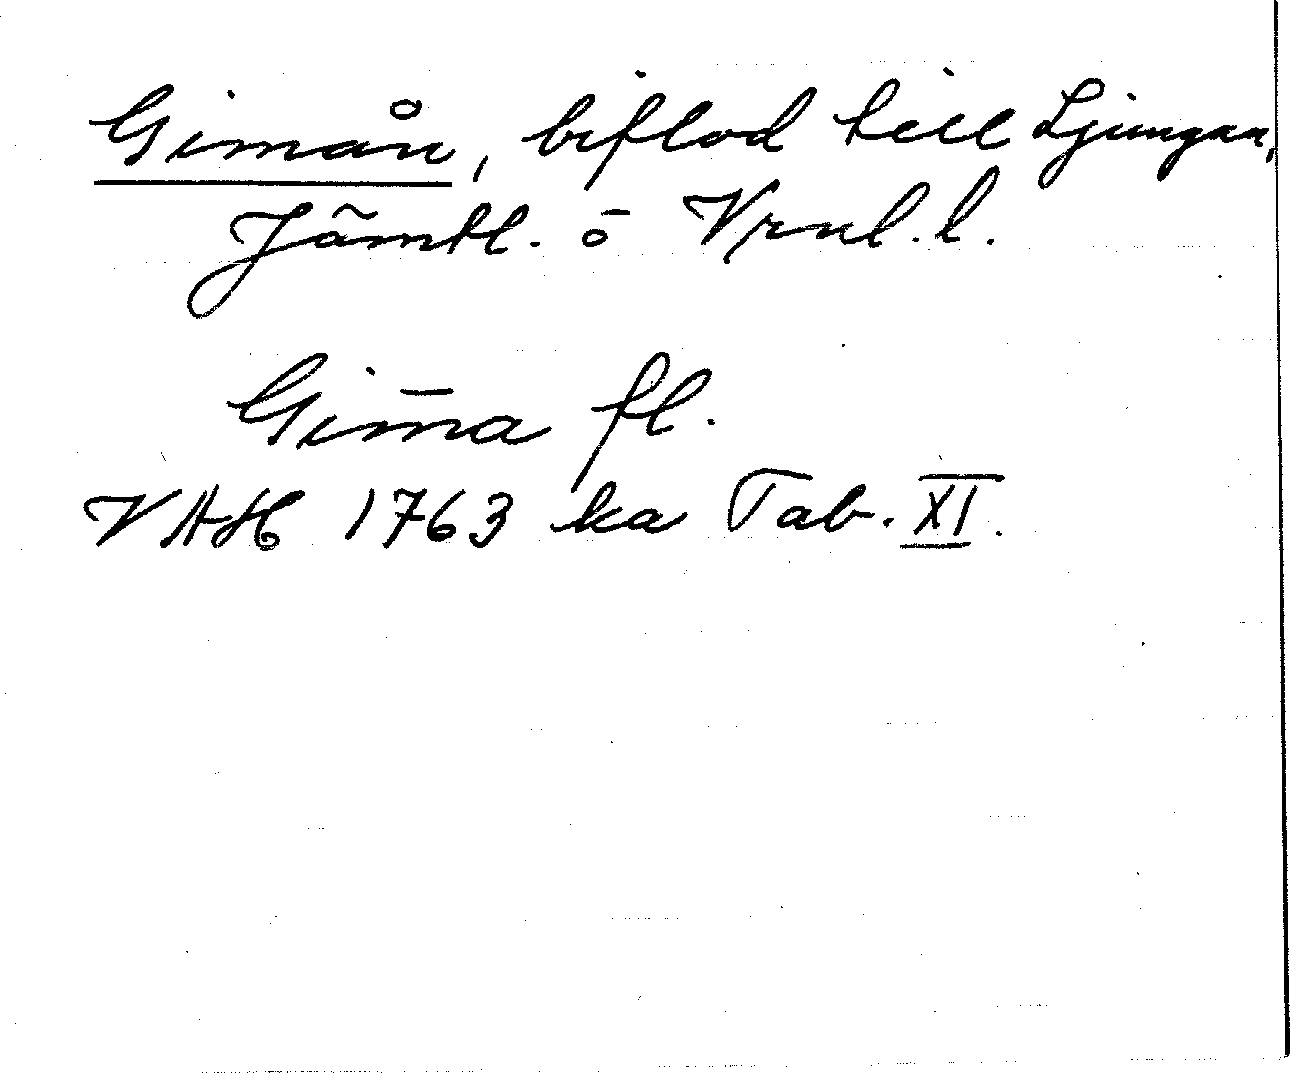 Gimån, biflod till Ljungan,
Jämtl. ö Vrnl. l.
Gim̄a fl.
VAH 1763 ka Tab. XI.